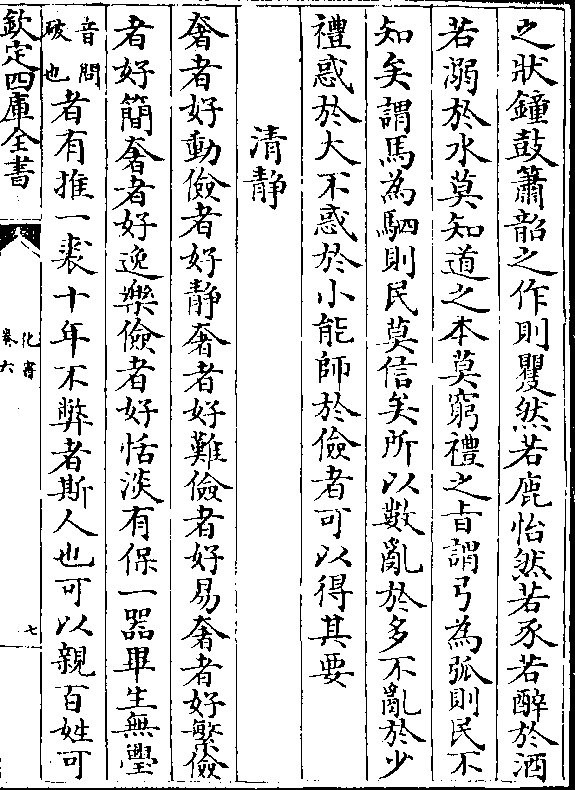 之狀鐘鼓簫韶之作則矍然若鹿怡然若豕若醉於酒
若溺於水莫知道之本莫窮禮之旨謂弓為弧則民不
知矣謂馬為駟則民莫信矣所以數亂於多不亂於少
禮惑於大不惑於小能師於儉者可以得其要
清静
奢者好動儉者好静奢者好難儉者好易奢者好繁儉
者好簡奢者好逸樂儉者好恬淡有保一器畢生無璺
音問
破也
者有挂一裘十年不弊者斯人也可以親百姓可
欽定四庫全書
化書
卷六
七